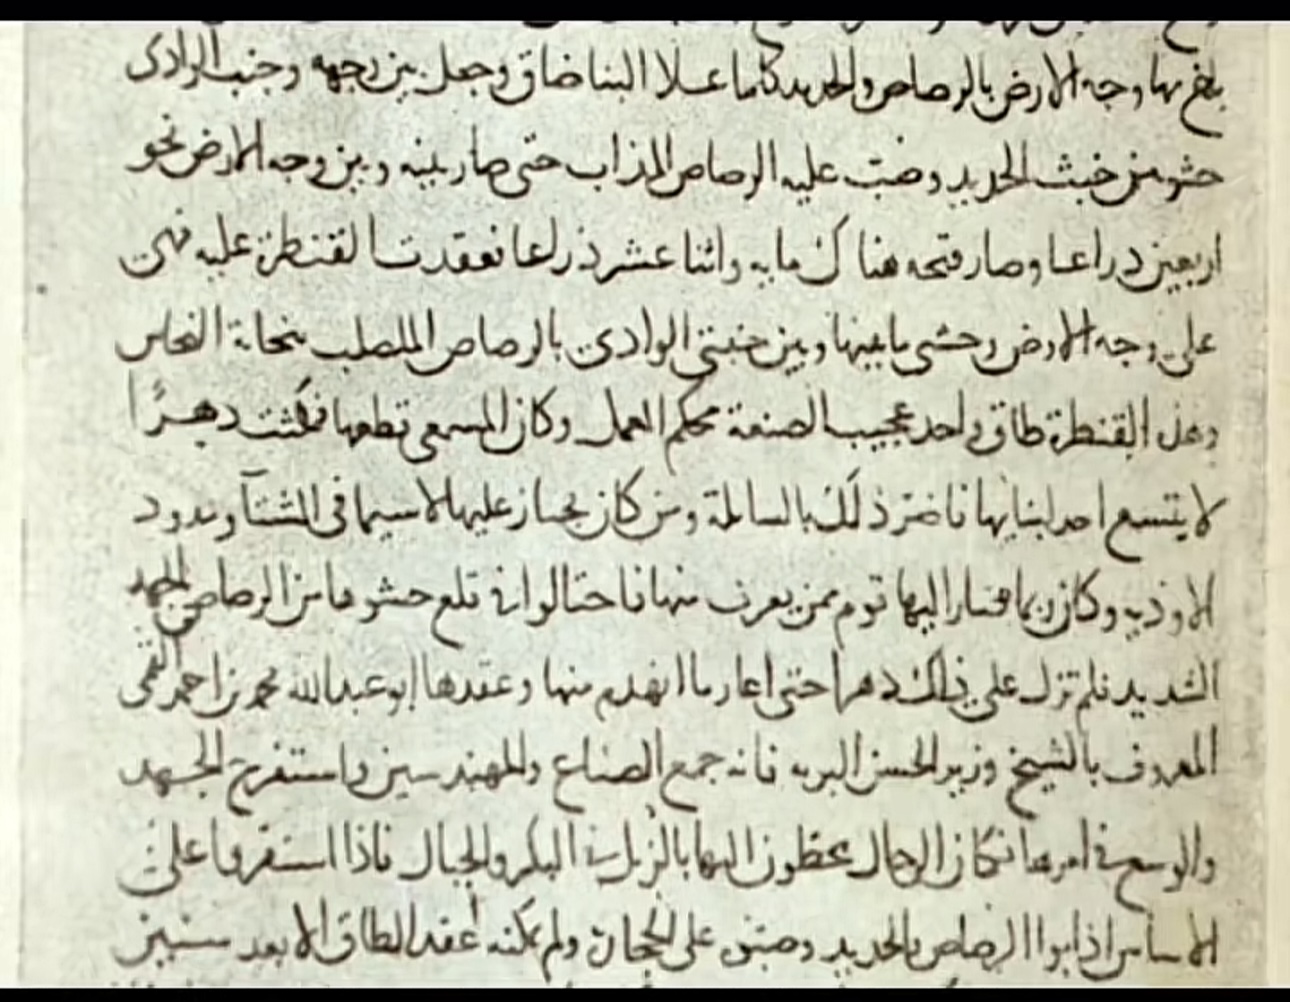 بلغ بها وجه الارض بالرصاص والحديد كلما علا البنا ضاق وجعل بين وجهه وجنب الوادى
حشو من خبث الحديد وصب عليه الرصاص المذاب حتى صار بينه وبين وجه الارض نحو
اربعين دراعا وصار فتحه هناك مايه واثنا عشر ذراعا فعقدت القنطرة عليه فهى
على وجه الارض وحشى ما بينها وبين جنبتى الوادى بالرصاص الملصلب بنحاتة النحاس
وهذه القنطرة طاق واحد عجيب الصنعة محكم العمل وكان المسمعى قطعها فمكثت دهرًا
لا يتسع احد لبنايها فاضر ذلك بالسابلة ومن كان يجتاز عليها لا سيما فى الشتآ ومدود
الاوديه وكان ربما صار اليها قوم ممن يعرف منها فاحتالوا فى قلع حشوها من الرصاص بالجهد
الشديد فلم تزل على ذلك دهرا حتى اعاد ما انهدم منها وعقدها ابو عبد الله محمد بن احمد القمى
المعروف بالشيخ وزير الحسن البويه فانه جمع الصناع والمهندسين واستفرغ الجهد
والوسع فى امرها فكان الرجال يحطون اليها بالزبل فى البكر والحبال فاذا استقروا على
الاساس اذابوا الرصاص بالحديد وصبوه على الحجارة ولم يمكنه عقد الطاق الا بعد سنين